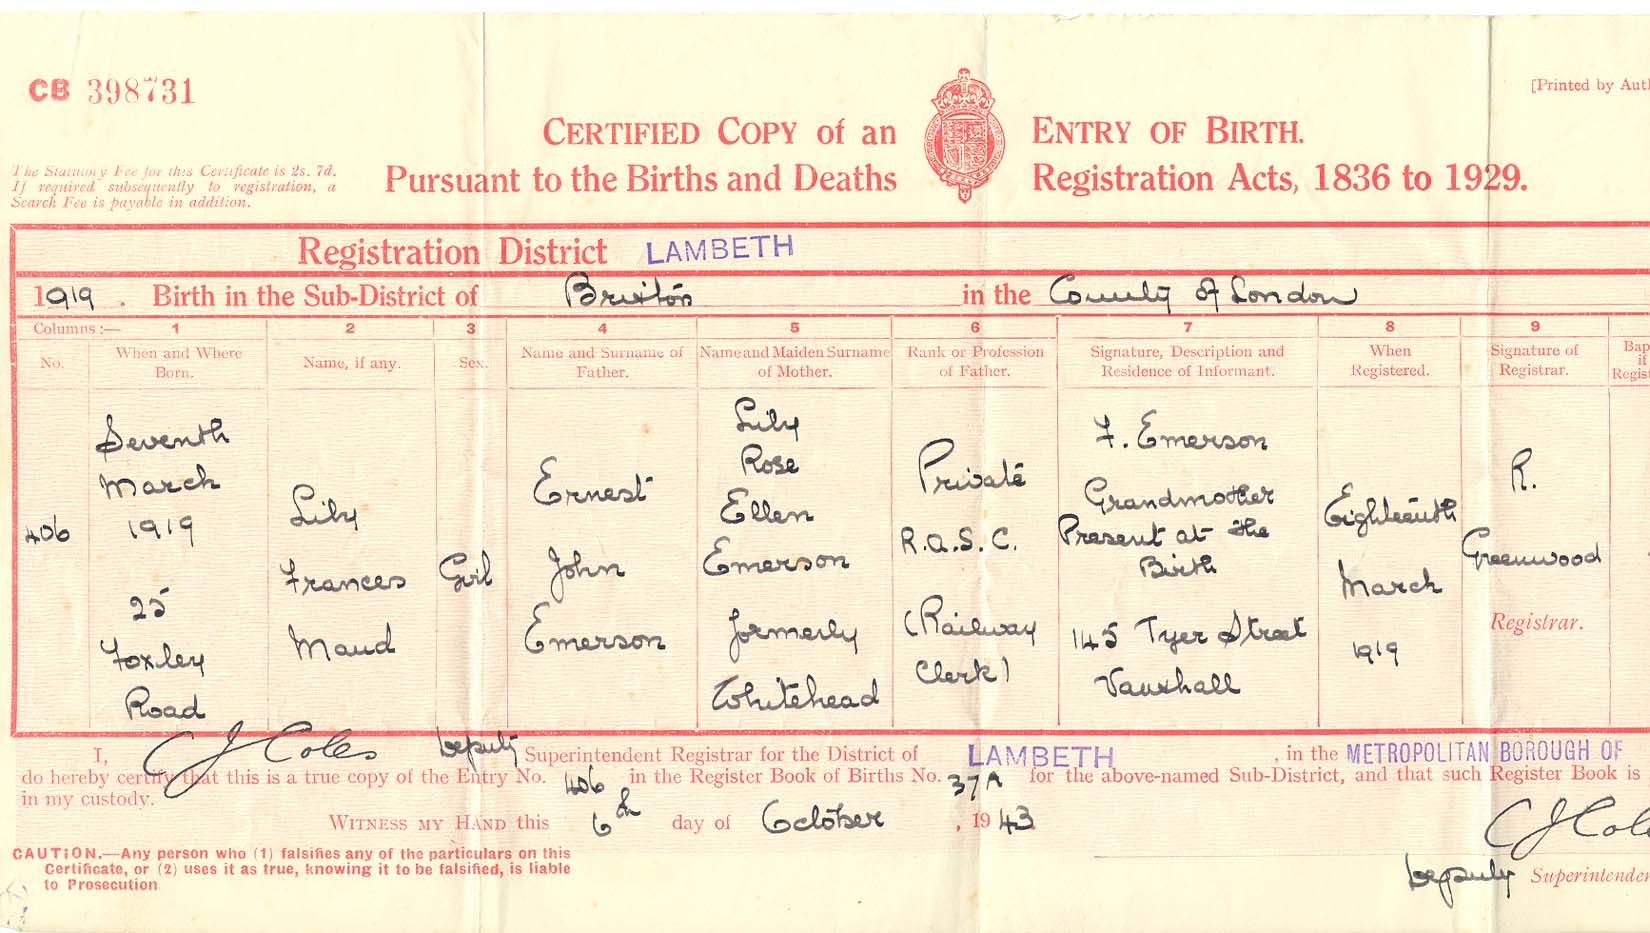 CB 398731
[Printed by Aut
CERTIFIED COPY of an ENTRY OF BIRTH.
Pursuant to the Births and Deaths Registration Acts, 1836 to 1929.
The Statutory Fee for this Certificate is 2s. 7d.
If required subsequently to registration, a
Search Fee is payable in addition.
Registration District LAMBETH
1919. Birth in the Sub-District of Brixton in the County of London
Columns :— 1 2 3 4 5 6 7 8 9
No.
When and Where
Born.
Name, if any.
Sex.
Name and Surname of
Father.
Name and Maiden Surname
of Mother.
Rank or Profession
of Father.
Signature, Description and
Residence of Informant.
When
Registered.
Signature of
Registrar.
Bap
if
Regist
406
Seventh
March
1919
25
Foxley
Road
Lily
Frances
Maud
Girl
Ernest
John
Emerson
Lily
Rose
Ellen
Emerson
formerly
Whitehead
Private
R.A.S.C.
(Railway
Clerk)
F. Emerson
Grandmother
Present at the
Birth
145 Tyer Street
Vauxhall
Eighteenth
March
1919
R.
Greenwood
Registrar.
I, C J Coles Deputy Superintendent Registrar for the District of LAMBETH, in the METROPOLITAN BOROUGH OF
do hereby certify that this is a true copy of the Entry No. 406 in the Register Book of Births No. 37A for the above-named Sub-District, and that such Register Book is
in my custody.
WITNESS MY HAND this 6th day of October, 1943.
CAUTION.—Any person who (1) falsifies any of the particulars on this
Certificate, or (2) uses it as true, knowing it to be falsified, is liable
to Prosecution
C J Col
Deputy Superintende